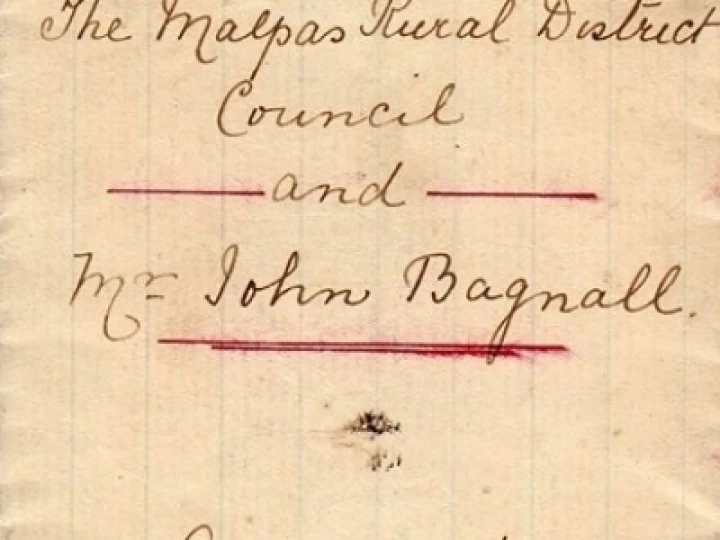 The Malpas Rural District
Council
and
Mr John Bagnall.